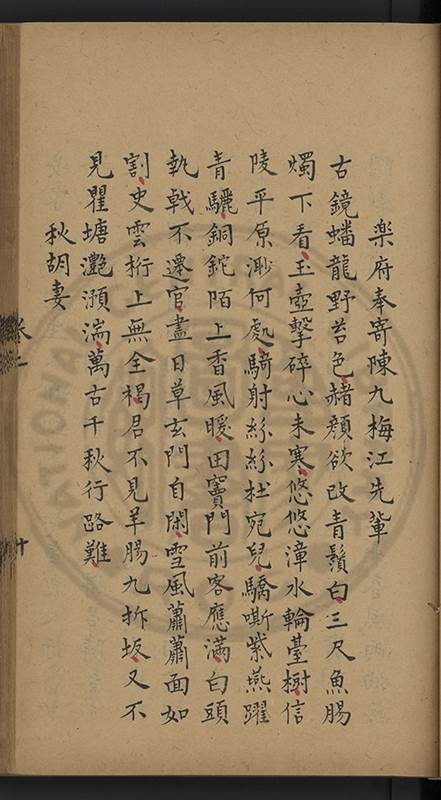 樂府奉寄陳九梅江先輩
古鏡蟠龍野苔色赭顏欲改青鬢白三尺魚腸
燭下看玉壺擊碎心未寒悠悠漳水輪臺樹信
陵平原渺何處騎射紛紛扗宛兒驕嘶紫燕躍
青驪銅鉈陌上香風暖田竇門前客應滿白頭
執戟不遷官盡日草玄門自閑雪風蕭蕭面如
割史雲桁上無全褐君不見羊腸九折坂又不
見瞿塘灧澦湍萬古千秋行路難
秋胡妻